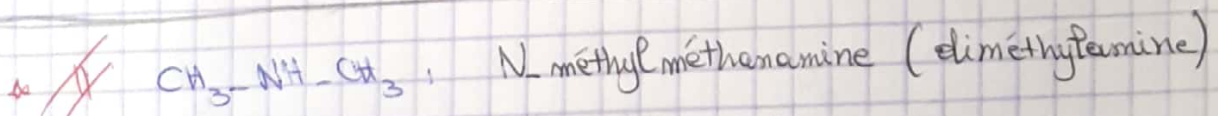 CH₃-NH-CH₃ : N-méthylméthanamine (diméthylamine)